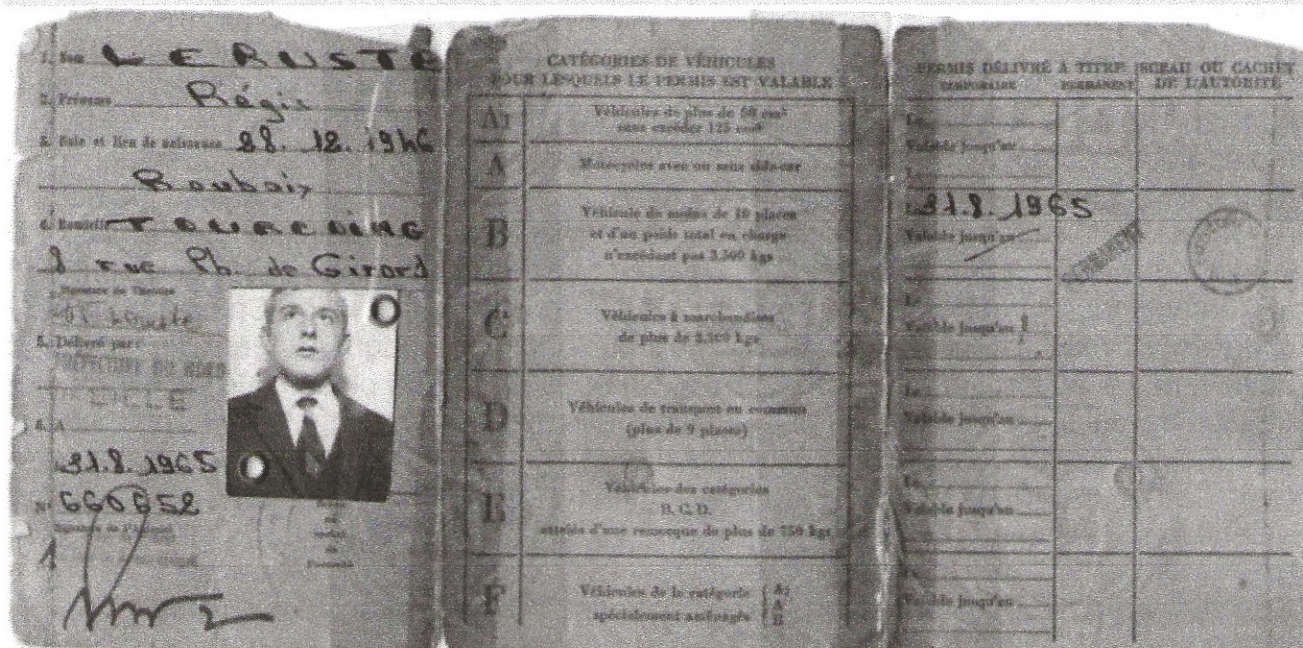 1. Nom LERUSTE
2. Prénoms Régis
3. Date et lieu de naissance 28.12.1946
Roubaix
4. Domicile TOURCOING
8 rue Ph. de Girard
Signature du Titulaire
5. Délivré par :
PRÉFECTURE DU NORD
6. A
31.8.1965
N° 660652
Signature de l'Autorité
CATÉGORIES DE VÉHICULES
POUR LESQUELS LE PERMIS EST VALABLE
A1 Véhicules de plus de 50 cm³
sans excéder 125 cm³
A Motocycles avec ou sans side-car
B Véhicule de moins de 10 places
et d'un poids total en charge
n'excédant pas 3.500 kgs
C Véhicules à marchandises
de plus de 3.500 kgs
D Véhicules de transport en commun
(plus de 9 places)
E Véhicules des catégories
B. C. D.
attelés d'une remorque de plus de 750 kgs
F Véhicules de la catégorie A1 A B
spécialement aménagés
PERMIS DÉLIVRÉ A TITRE
TEMPORAIRE PERMANENT
SCEAU OU CACHET
DE L'AUTORITÉ
Le
Valable jusqu'au
Le
Le 31.8.1965
Valable jusqu'au
PERMANENT
Le
Valable jusqu'au
Le
Valable jusqu'au
Le
Valable jusqu'au
Le
Valable jusqu'au